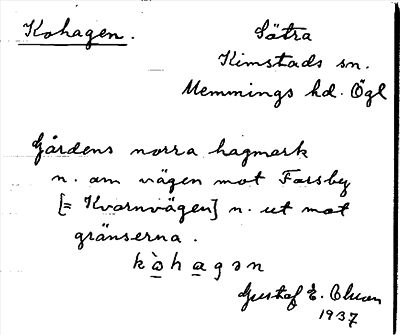 Kohagen.
Sätra
Kimstads sn.
Memmings hd. Ögl
Gårdens norra hagmark
n. om vägen mot Forsby
[= Kvarnvägen] n. ut mot
gränserna.
kò̱ha̱gən
Gustaf E. Olsson
1937